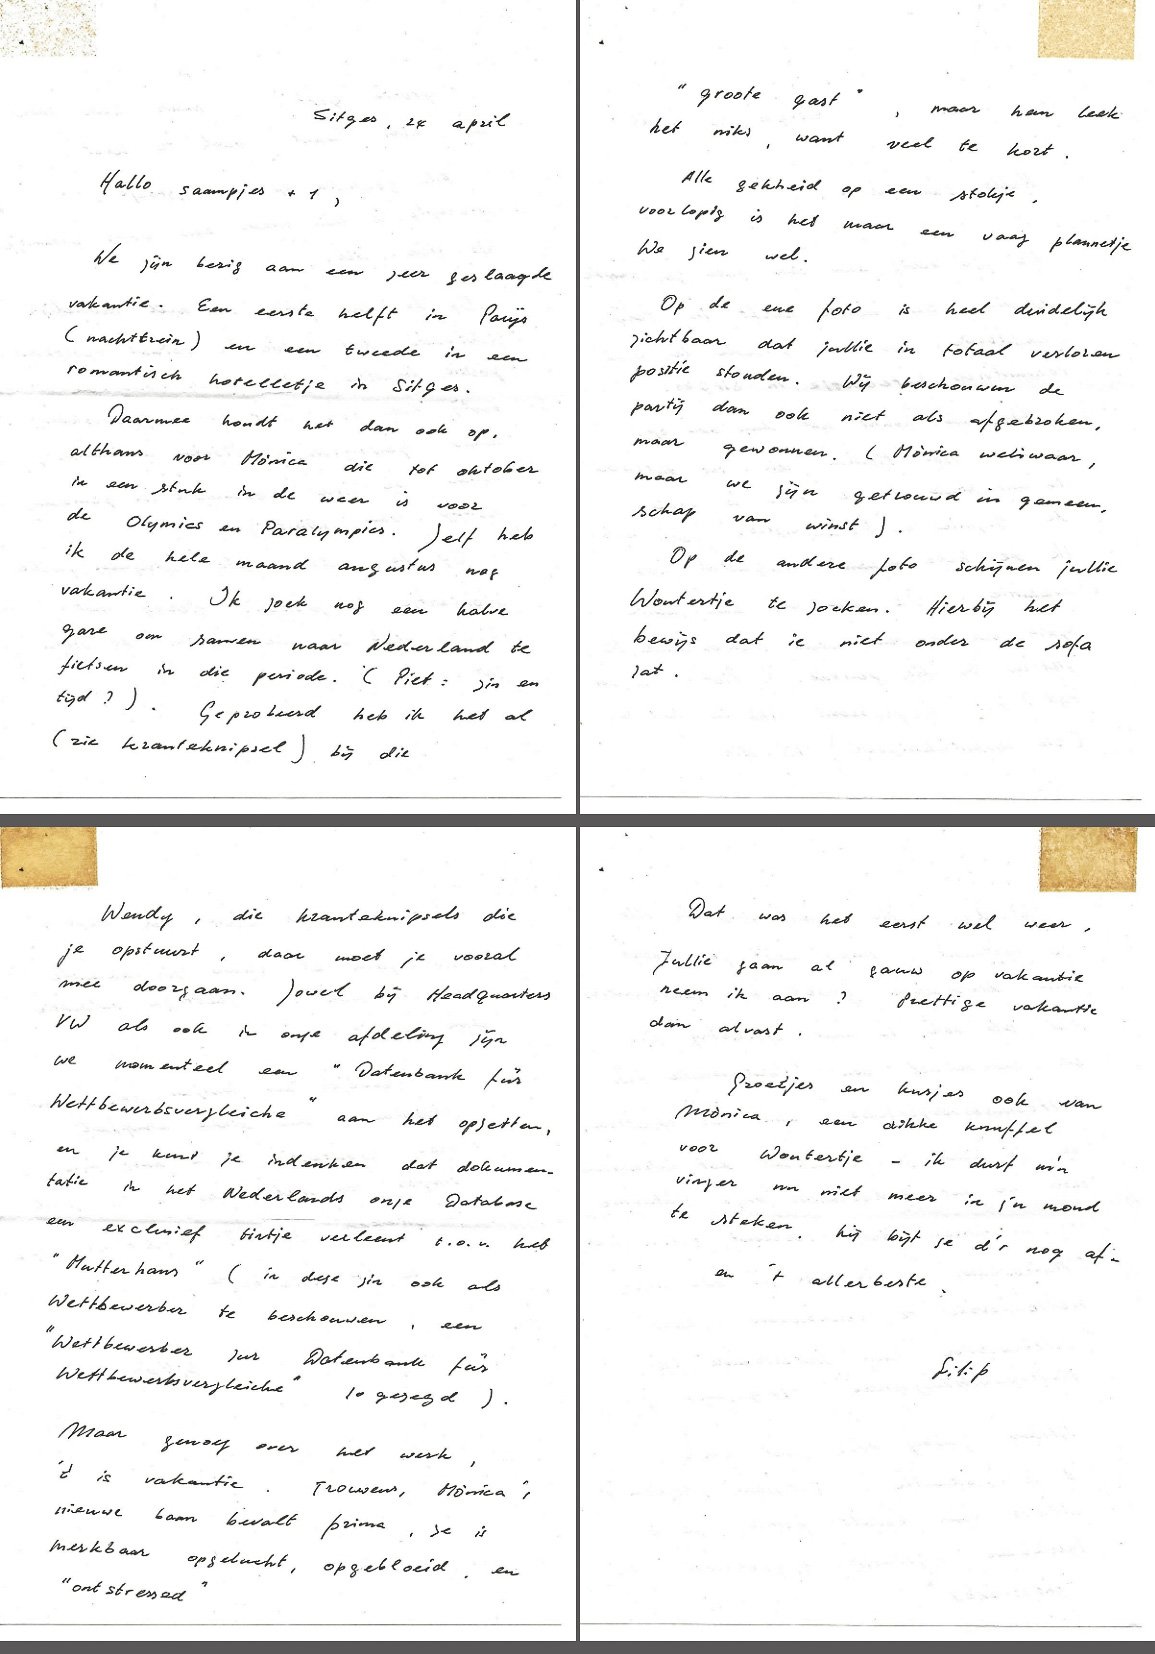 Sitges, 24 april
Hallo saampjes + 1,
We zijn bezig aan een zeer geslaagde
vakantie. Een eerste helft in Parijs
(nachttrein) en een tweede in een
romantisch hotelletje in Sitges.
Daarmee houdt het dan ook op,
althans voor Mònica die tot oktober
in een stuk in de weer is voor
de Olymics en Paralympics. Zelf heb
ik de hele maand augustus nog
vakantie. Ik zoek nog een halve
gare om samen naar Nederland te
fietsen in die periode. (Piet: zin en
tijd?). Geprobeerd heb ik het al
(zie kranteknipsel) bij die
"groote gast", maar hem leek
het niks, want veel te kort.
Alle gekheid op een stokje,
voorlopig is het maar een vaag plannetje
We zien wel.
Op de ene foto is heel duidelijk
zichtbaar dat jullie in totaal verloren
positie stonden. Wij beschouwen de
partij dan ook niet als afgebroken,
maar gewonnen. (Mònica weliswaar,
maar we zijn getrouwd in gemeen-
schap van winst).
Op de andere foto schijnen jullie
Woutertje te zoeken. Hierbij het
bewijs dat ie niet onder de sofa
zat.
Wendy, die kranteknipsels die
je opstuurt, daar moet je vooral
mee doorgaan. Zowel bij Headquarters
VW als ook in onze afdeling zijn
we momenteel een "Datenbank für
Wettbewerbsvergleiche" aan het opzetten,
en je kunt je indenken dat dokumen-
tatie in het Nederlands onze Database
een exclusief tintje verleent t.o.v. het
"Mutterhaus" (in deze zin ook als
Wettbewerber te beschouwen, een
"Wettbewerber zur Datenbank für
Wettbewerbsvergleiche" zo gezegd).
Maar genoeg over het werk,
't is vakantie. Trouwens, Mònica's
nieuwe baan bevalt prima, ze is
merkbaar opgelucht, opgebloeid, en
"ontstressed"
Dat was het eerst wel weer,
Jullie gaan al gauw op vakantie
neem ik aan? Prettige vakantie
dan alvast.
Groetjes en kusjes ook van
Mònica, een dikke knuffel
voor Woutertje - ik durf m'n
vinger nu niet meer in z'n mond
te steken, hij bijt je d'r nog af -
en 't allerbeste,
Filip